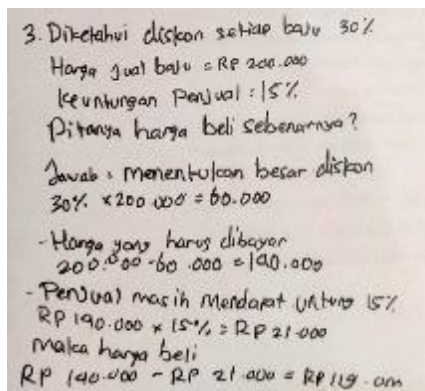 3. Diketahui diskon setiap baju 30%
Harga jual baju = RP 200.000
Keuntungan Penjual : 15%
Ditanya harga beli sebenarnya?
Jawab : menentukan besar diskon
30% x 200 000 = 60.000
- Harga yang harus dibayar
200.000 - 60.000 = 140.000
- Penjual masih Mendapat untung 15%
RP 140.000 x 15% = RP 21.000
maka harga beli
RP 140.000 - RP 21.000 = RP 119.000